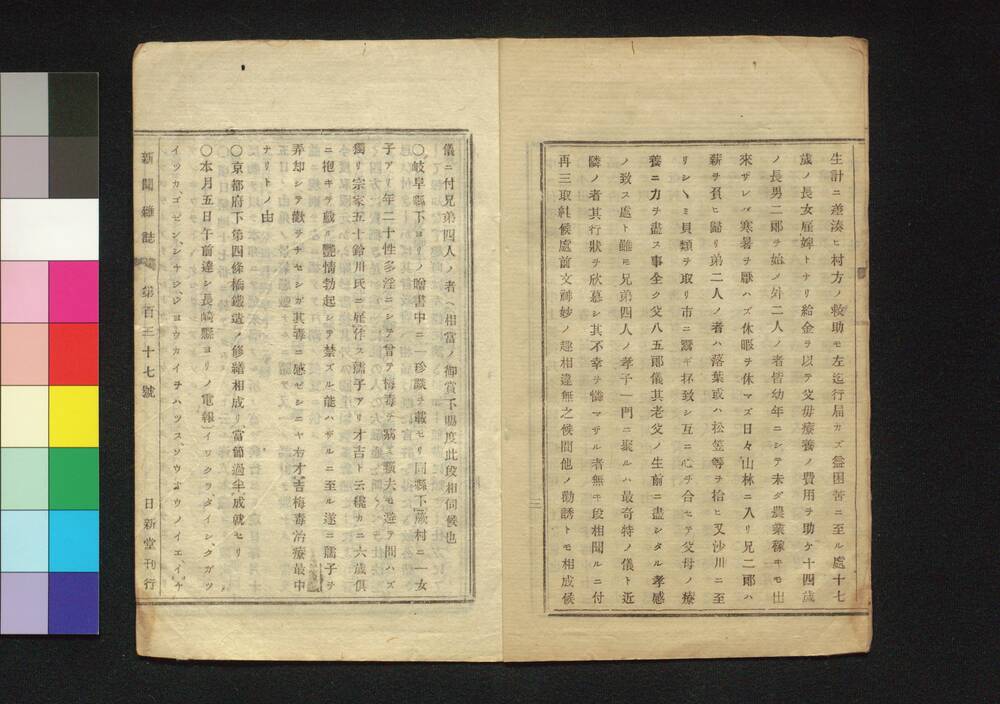 生計ニ差湊ヒ村方ノ救助モ左迄行屆カズ益困苦ニ至ル處十七
歲ノ長女雇婢トナリ給金ヲ以テ父母療養ノ費用ヲ助ケ十四歲
ノ長男二郎ヲ始メ外二人ノ者皆幼年ニシテ未ダ農業稼キモ出
來ザレバ寒暑ヲ厭ハズ休暇ヲ休マズ日々山林ニ入リ兄二郎ハ
薪ヲ負ヒ歸リ弟二人ノ者ハ落葉或ハ松笠等ヲ拾ヒ又沙川ニ至
リシヾミ貝類ヲ取リ市ニ鬻ギ抔致シ互ニ心ヲ合セテ父母ノ療
養ニ力ヲ盡ス事全ク父八五郎儀其老父ノ生前ニ盡シタル孝感
ノ致ス處ト雖モ兄弟四人ノ孝子一門ニ聚ルハ最奇特ノ儀ト近
隣ノ者其行狀ヲ欣慕シ其不幸ヲ憐マザル者無キ段相聞ルニ付
再三取糺候處前文神妙ノ趣相違無之候間他ノ勸誘トモ相成候
儀ニ付兄弟四人ノ者ヘ相當ノ御賞下賜度此段相伺候也
〇岐阜縣下ヨリノ贈書中ニ一珍談ヲ載セリ同縣下蕨村ニ一女
子アリ年二十性多淫ニシテ曾テ梅毒ヲ病ミ類夫モ遊テ問ハズ
獨リ宗家五十鈴川氏ニ雇作ス孺子アリ才吉ト云纔カニ六歲俱
ニ抱キテ戱ル艷情勃起シテ禁ズル能ハザルニ至ル遂ニ孺子ヲ
弄却シテ歡ヲナセシガ其毒ニ感ゼシニヤ右才吉梅毒治療最中
ナリトノ由
〇京都府下第四條橋鐵造ノ修繕相成リ當節過半成就セリ
〇本月五日午前達シ長崎縣ヨリノ電報イワクラダイシ、クガツ
イツカ、ゴゼン、シナジ、ジョウカイチハツス、ソウオウノイエイヤ
新聞雜誌 第百三十七號 日新堂刊行